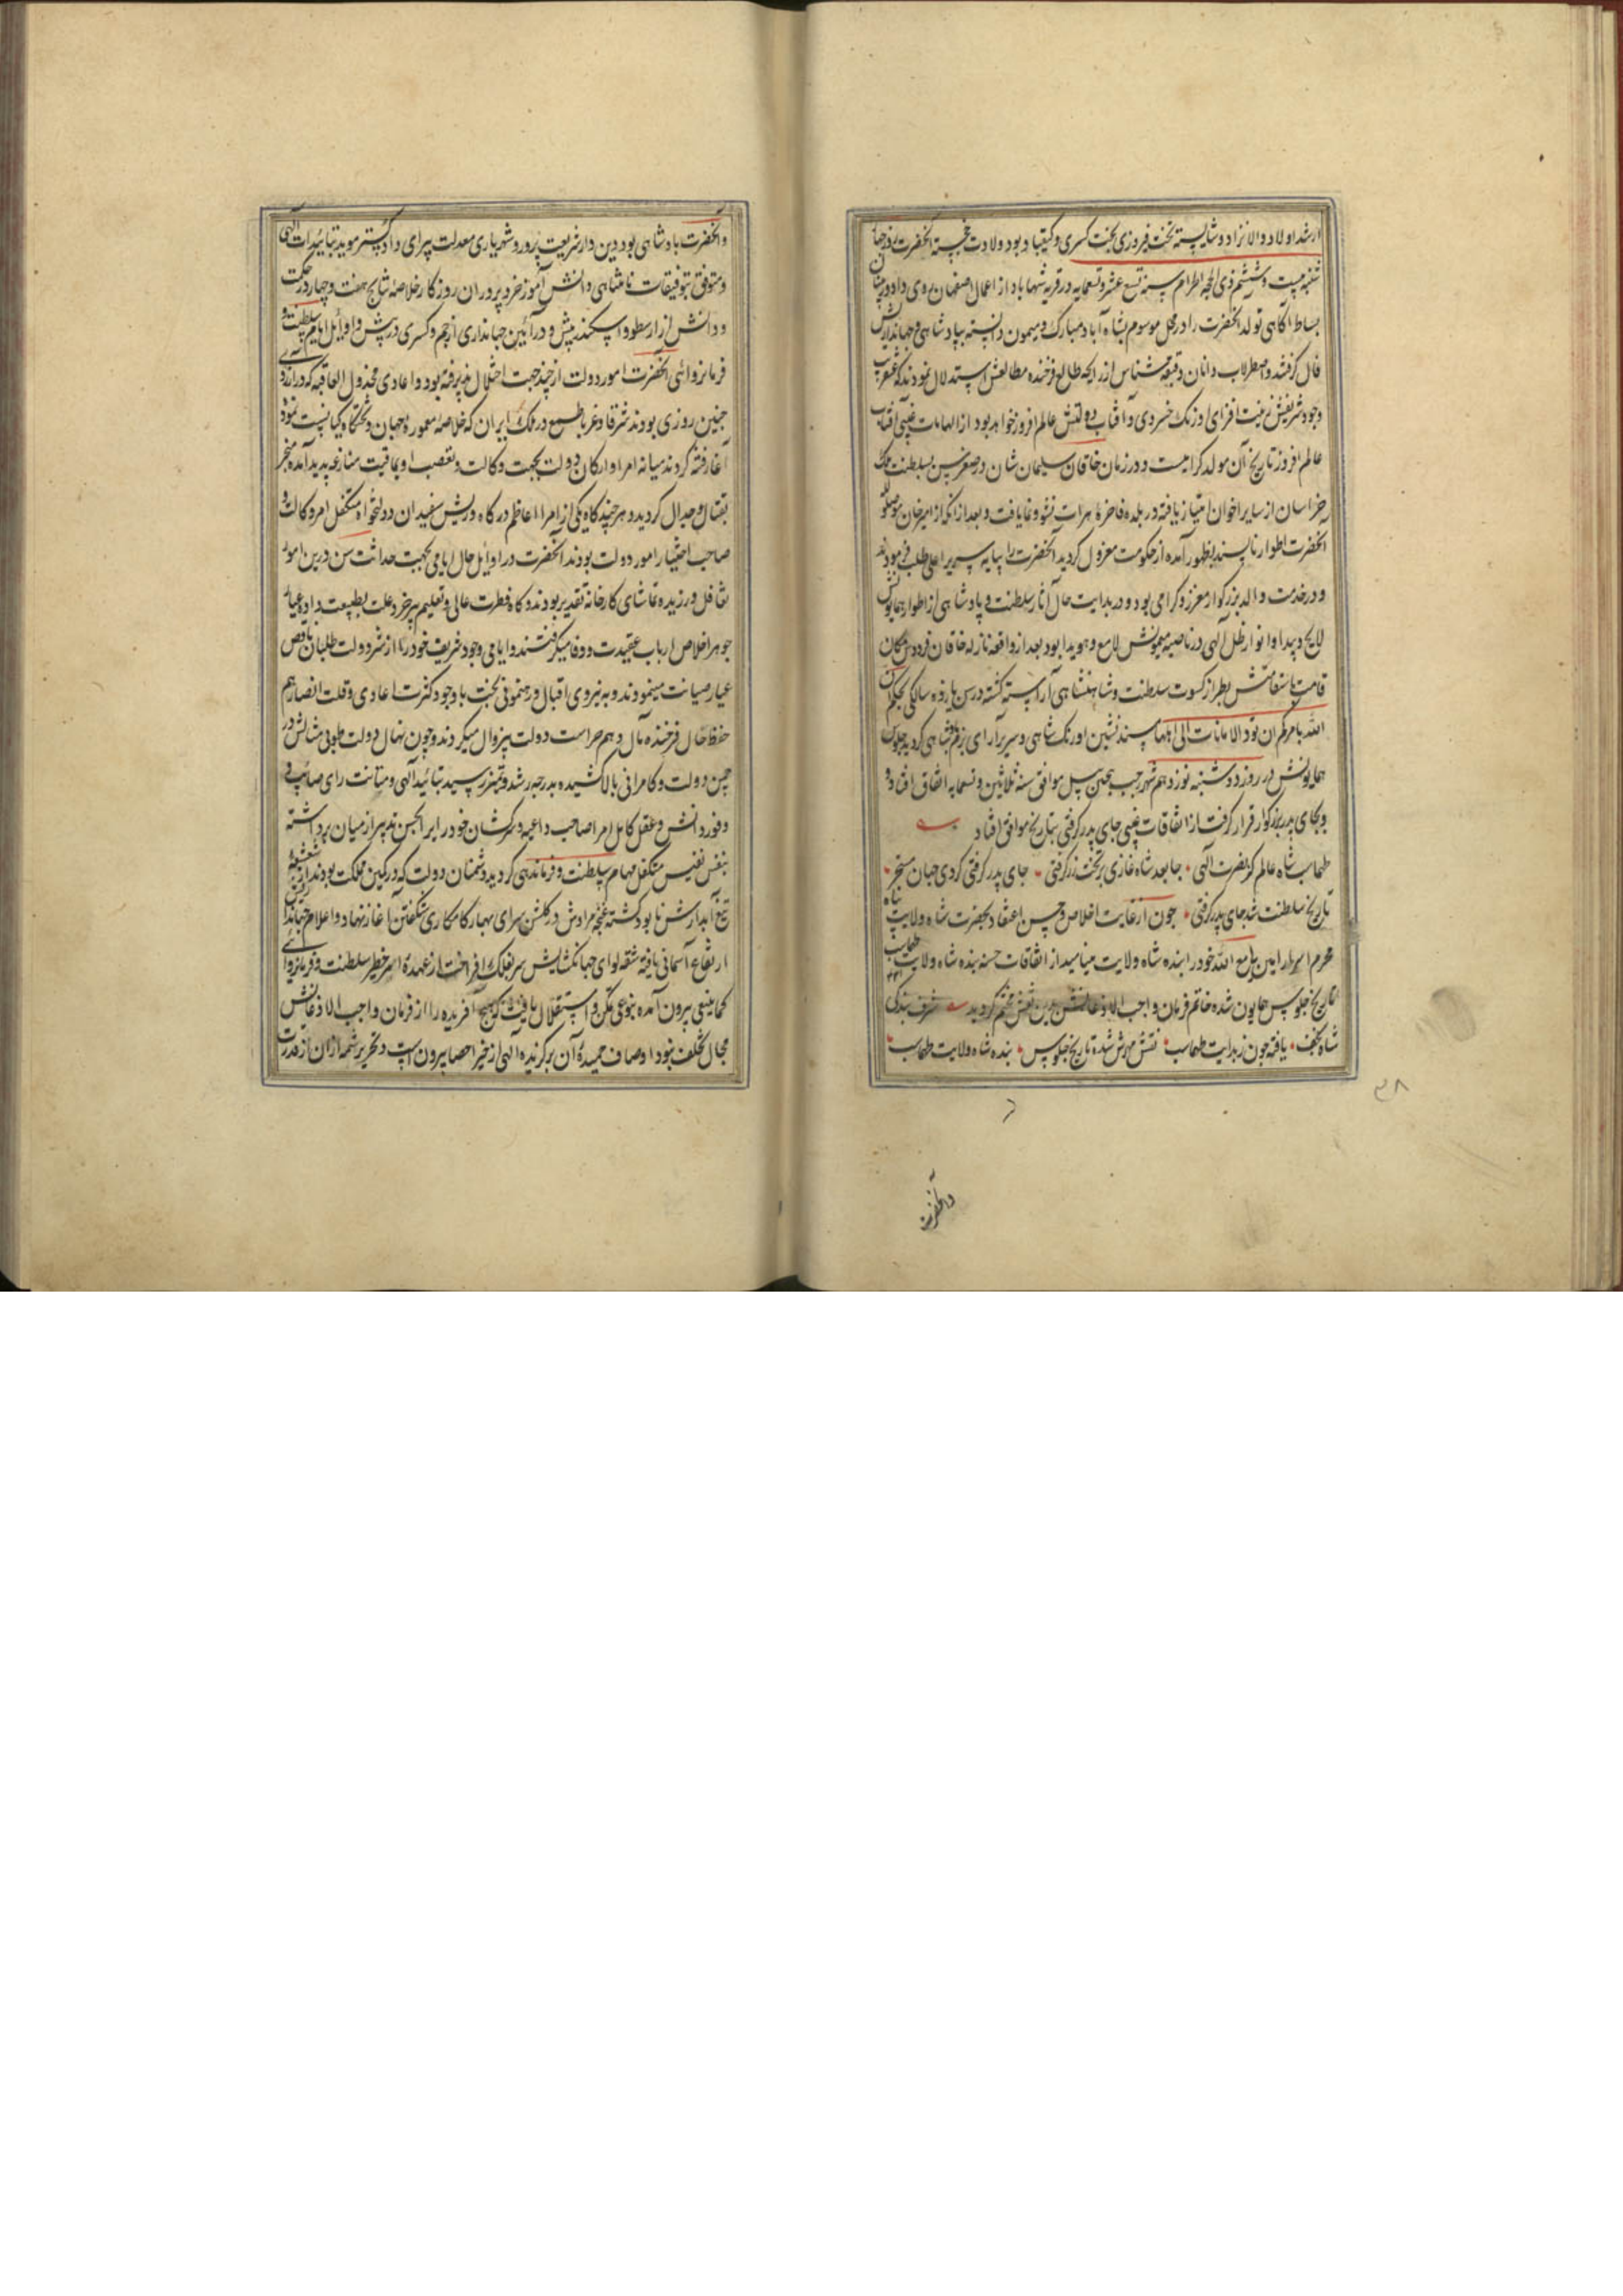 ارشد اولاد والانژاد و شایسته تخت فیروزی بخت کسری و کیقباد بود ولادت خجسته آنحضرت روز چهار
شنبه بیست و ششم ذی الحجه الحرام سنه تسع عشر و تسعمایه در قریه شهاباد از اعمال اصفهان روی داد و
بساط آگاهی تولد آنحضرت را در محل موسوم بشاه آباد مبارک و میمون دانسته بپادشاهی و جهانداریش
فال گرفتند و اصطرلاب دانان دقیقه شناس از زایجه طالع فرخنده مطالعش استدلال نمودند که عنقریب
وجود شریفش زینت افزای اورنگ خسروی و آفتاب دولتش عالم افروز خواهد بود از الهامات غیبی آفتاب
عالم افروز تاریخ آن مولد گرامیست و در زمان خاقان سلیمان شان در صغر سن بسلطنت ملک
خراسان از سایر اخوان امتیاز یافته در بلده فاخره هرات نشو و نما یافت و بعد از آنکه از امیر خان موصللو
آنحضرت اطوار ناپسند بظهور آمده از حکومت معزول گردید آنحضرت را بپایه سریر اعلی طلب فرمودند
و در خدمت والد بزرگوار معزز و گرامی بود و در بدایت حال آثار سلطنت و پادشاهی از اطوار همایونش
لایح و پیدا و انوار ظل الهی در ناصیه میمونش لامع و هویدا بود بعد از واقعه نازله خاقان فردوس مکان
قامت باستقامتش بطراز کسوت سلطنت و شاهنشاهی آراسته گشته در سن یازده سالگی بحکم ان
الله یامرکم ان تودوا الامانات الی اهلها مسند نشین اورنگ شاهی و سریر آرای بزم پادشاهی گردید جلوس
همایونش در روز دوشنبه نوزدهم شهر رجب پیچین ییل موافق سنه ثلاثین و تسعمایه اتفاق افتاد و
و بجای پدر بزرگوار قرار گرفت از اتفاقات غیبی جای پدر گرفتی بتاریخ موافق افتاد
طهماسب شاه عالم کز نصرت الهی جا بعد شاه غازی بر تخت زر گرفتی جای پدر گرفتی کردی جهان مسخر
تاریخ سلطنت شد جای پدر گرفتی چون از غایت اخلاص و حسن اعتقاد بحضرت شاه ولایت پناه
محرم اسرار لی مع الله خود را بنده شاه ولایت مینامید از اتفاقات حسنه بنده شاه ولایت طهماسب
تاریخ جلوس همایون شده خاتم فرمان واجب الاذعانش بدین نقش مختم گردید شرف بندگی
شاه نجف یافته چون ز بدایت طهماسب نقش مهرش شده تاریخ جلوس بنده شاه ولایت طهماسب
۳۸
وآنحضرت
وآنحضرت پادشاهی بود دین دار شریعت پرور و شهریاری معدلت پیرای دادگستر موید بتائیدات الهی
و متوفق بتوفیقات نامتناهی دانش آموز خرد پروران روزگار خلاصه نتایج هفت و چهار در حکمت
و دانش از ارسطو و اسکندر بیش و در آئین جهانداری از جم و کسری در پیش و اوایل ایام سلطنت و
فرمانروائی آنحضرت امور دولت از چند جهت اختلال پذیرفته بود و اعادی مخذول العاقبه که در آرزوی
چنین روزی بودند شرقا و غربا طمع در ملک ایران که خلاصه معموره جهان و تختگاه کیانست نموده
آغاز فتنه کردند میانه امرا و ارکان دولت بجهت وکالت و تعصب اویماقیت منازعه پدید آمده منجر
بقتال و جدال گردید و هر چند گاه یکی از امراء اعاظم درگاه و ریش سفیدان دولتخواه متکفل امر وکالت و
صاحب اختیار امور دولت بودند آنحضرت در اوایل حال ایامی بجهت حداثت سن درین امور
تغافل ورزیده تماشای کارخانه تقدیر بودند و گاه فطرت عالی و تعلیم پیر خرد علت بطبیعت داده عیار
جوهر اخلاص ارباب عقیدت و وفا میگرفتند و ایامی وجود شریف خود را از شر دولت طلبان ناقص
عیار صیانت مینمودند و به نیروی اقبال و رهنمونی بخت باوجود کثرت اعادی و قلت انصار هم
حفظ حال فرخنده مآل و هم حراست دولت بیزوال میکردند و چون نهال دولت طوبی مثالش در
چمن دولت و کامرانی بالا کشیده بدرجه رشد و تمیز رسید بتائید الهی و متانت رای صائب و
وفور دانش و عقل کامل امرا صاحب داعیه و سرکشان خود رای را بحسن تدبیر از میان برداشته
بنفس نفیس متکفل مهام سلطنت و فرماندهی گردید و دشمنان دولت که در کمین مملکت بودند از شعشعه
تیغ آبدارش نابود گشته غنچه مرادش در گلشن سرای بهار کامکاری شگفتن آغاز نهاد و اعلام جهانداریش
ارتفاع آسمانی یافته شقه لوای جهانگشایش سر بفلک افراخت از عهده امر خطیر سلطنت و فرمانروائی
کما ینبغی بیرون آمده بنوعی تمکن و استقلال یافت که هیچ آفریده را از فرمان واجب الاذعانش
مجال تخلف نبود اوصاف حمیده آن برگزیده الهی از حیز احصا بیرون است و تحریر شمه از ان از قدرت